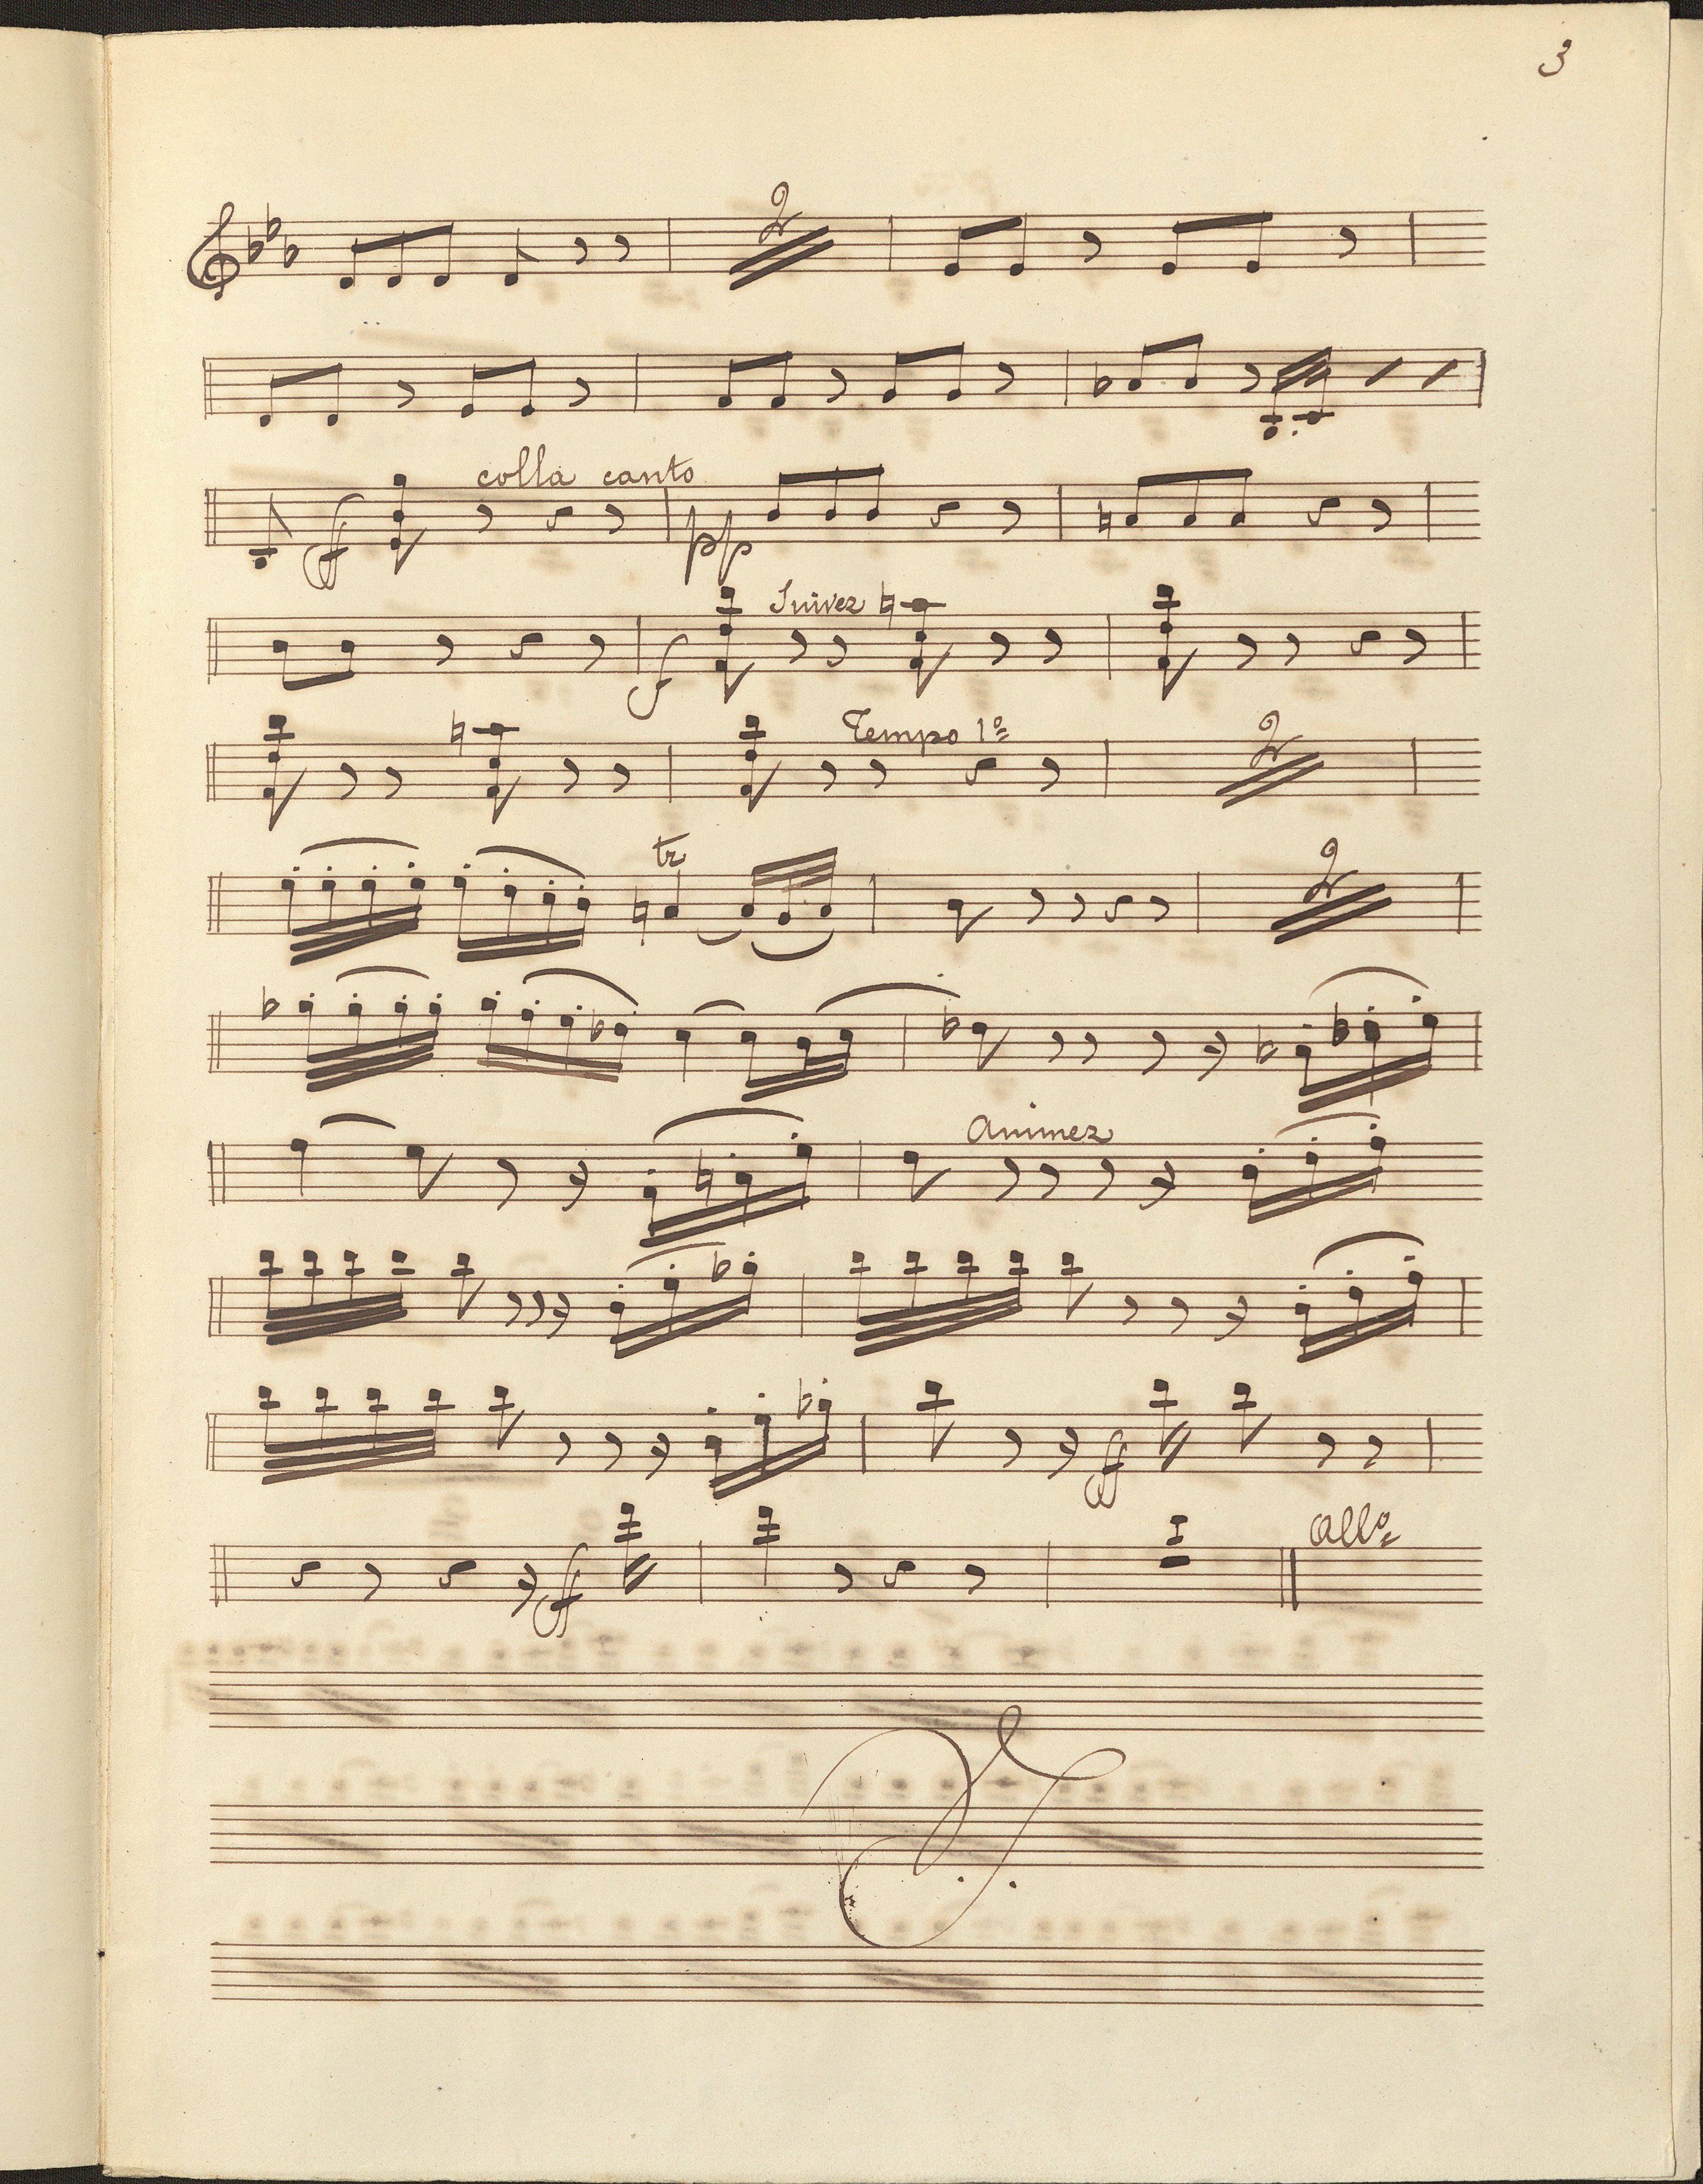 3
2
colla canto
ff
pp
Suivez
f
Tempo 1º
2
tr
2
animez
ff
ff
1
Allº